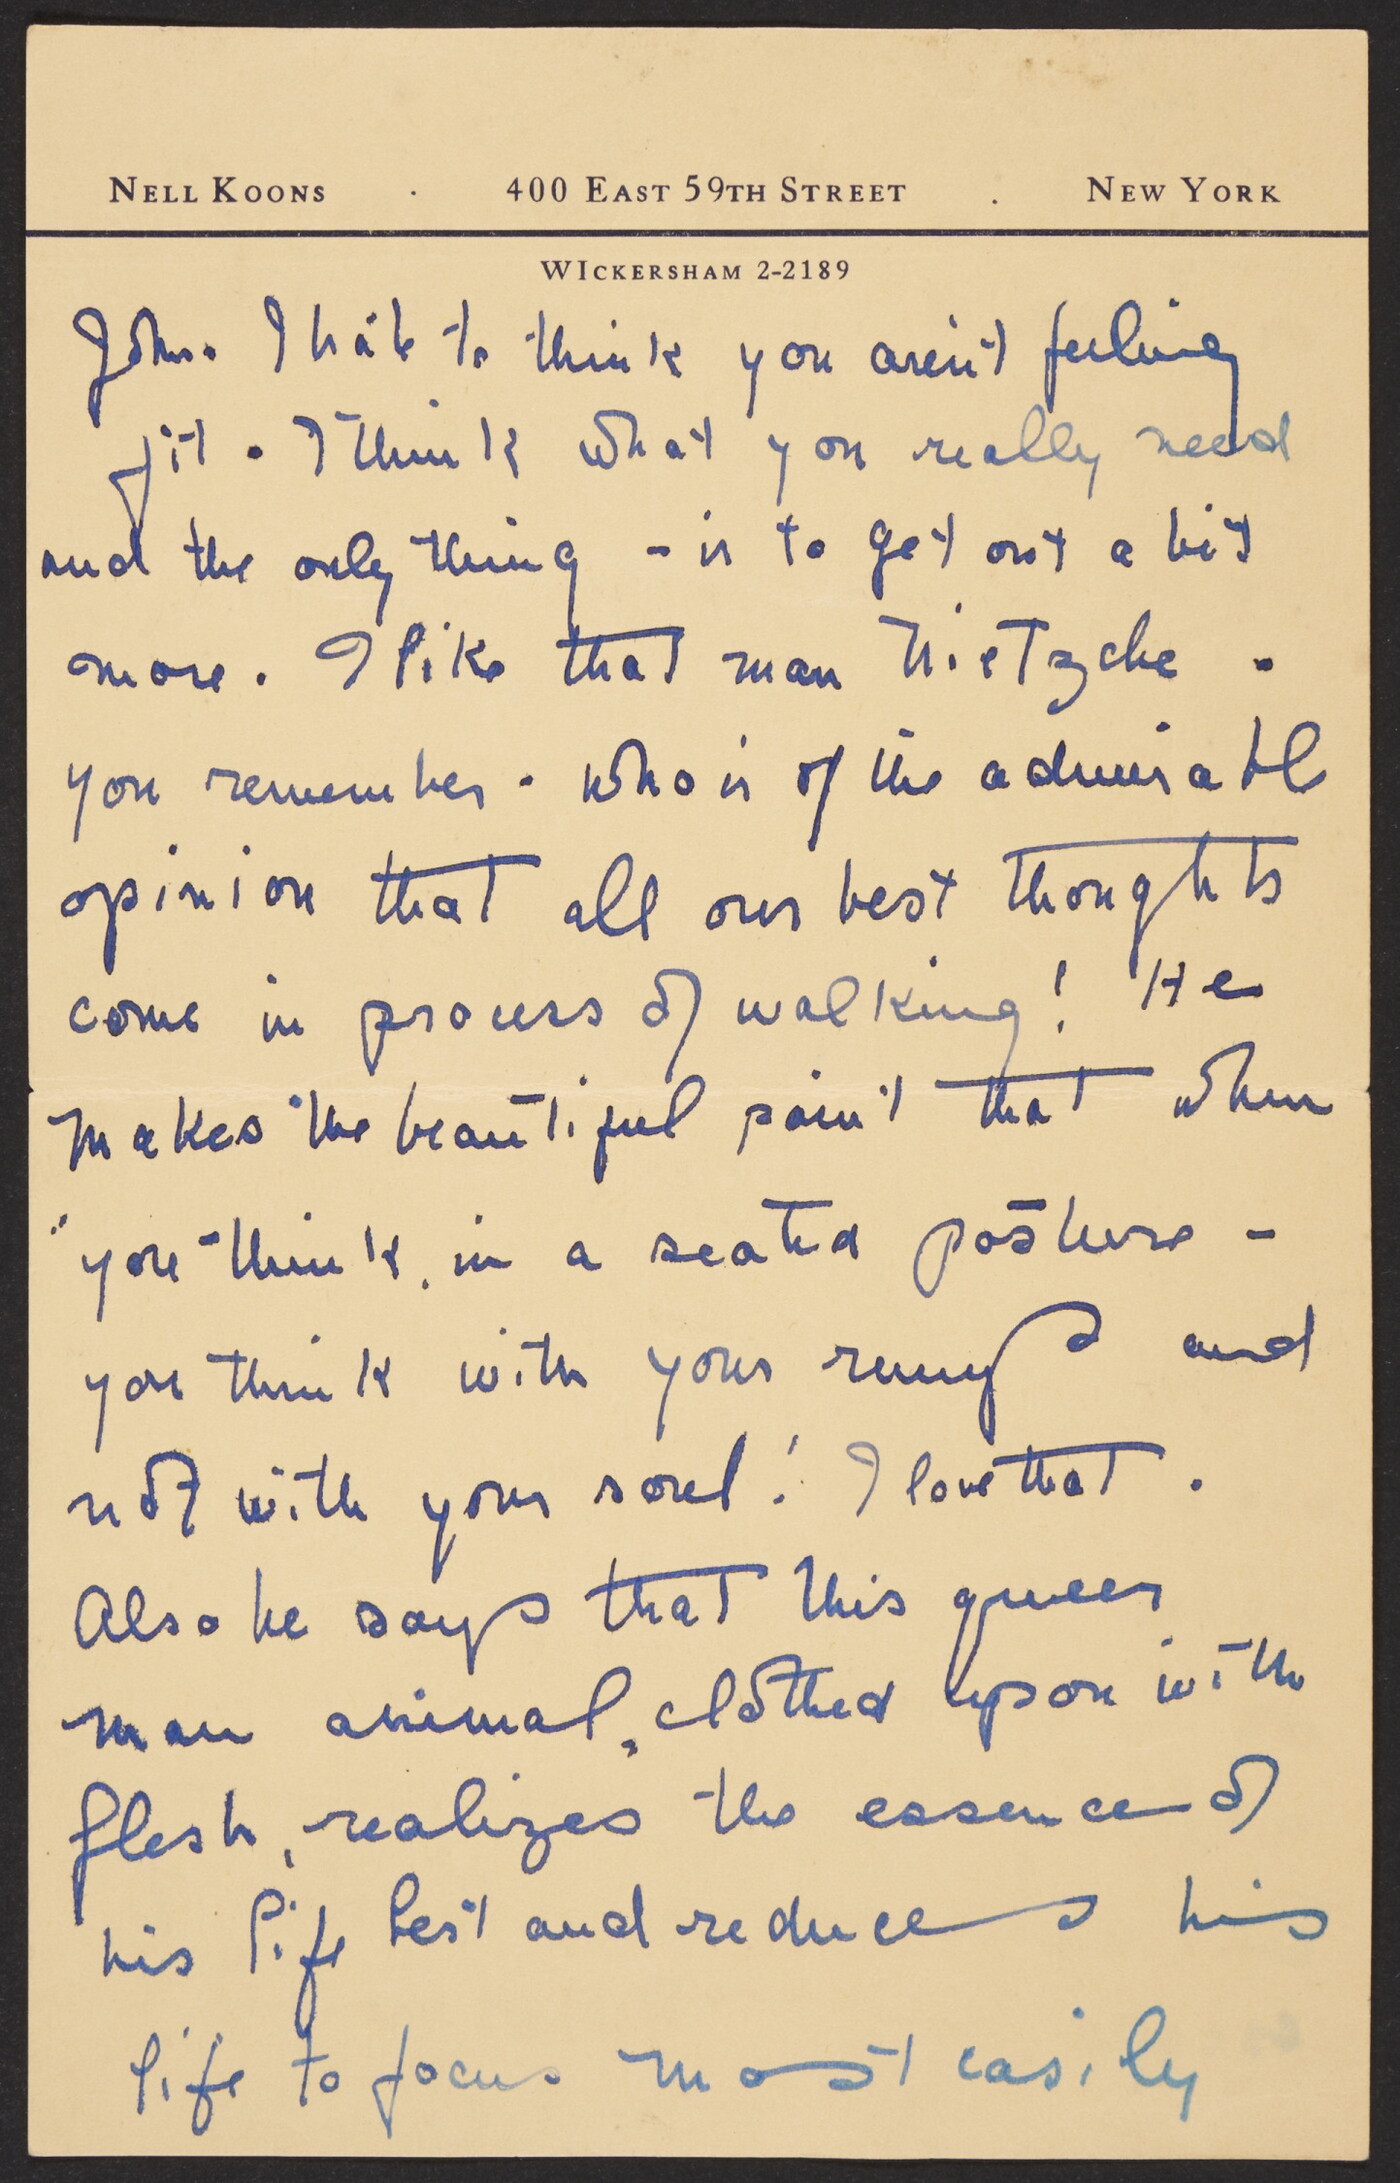 NELL KOONS · 400 EAST 59TH STREET . NEW YORK
WICKERSHAM 2-2189
John. I hate to think you aren't feeling
fit. I think what you really need
and the only thing - is to get out a bit
more. I like that man Nietzche -
you remember - who is of the admirable
opinion that all our best thoughts
come in process of walking! He
makes the beautiful point that when
"you think, in a seated posture -
you think with your rump and
not with your soul! I love that.
Also he says that this queer
man animal, clothed upon with
flesh, realizes the essence of
his life best and reduces his
life to focus most easily